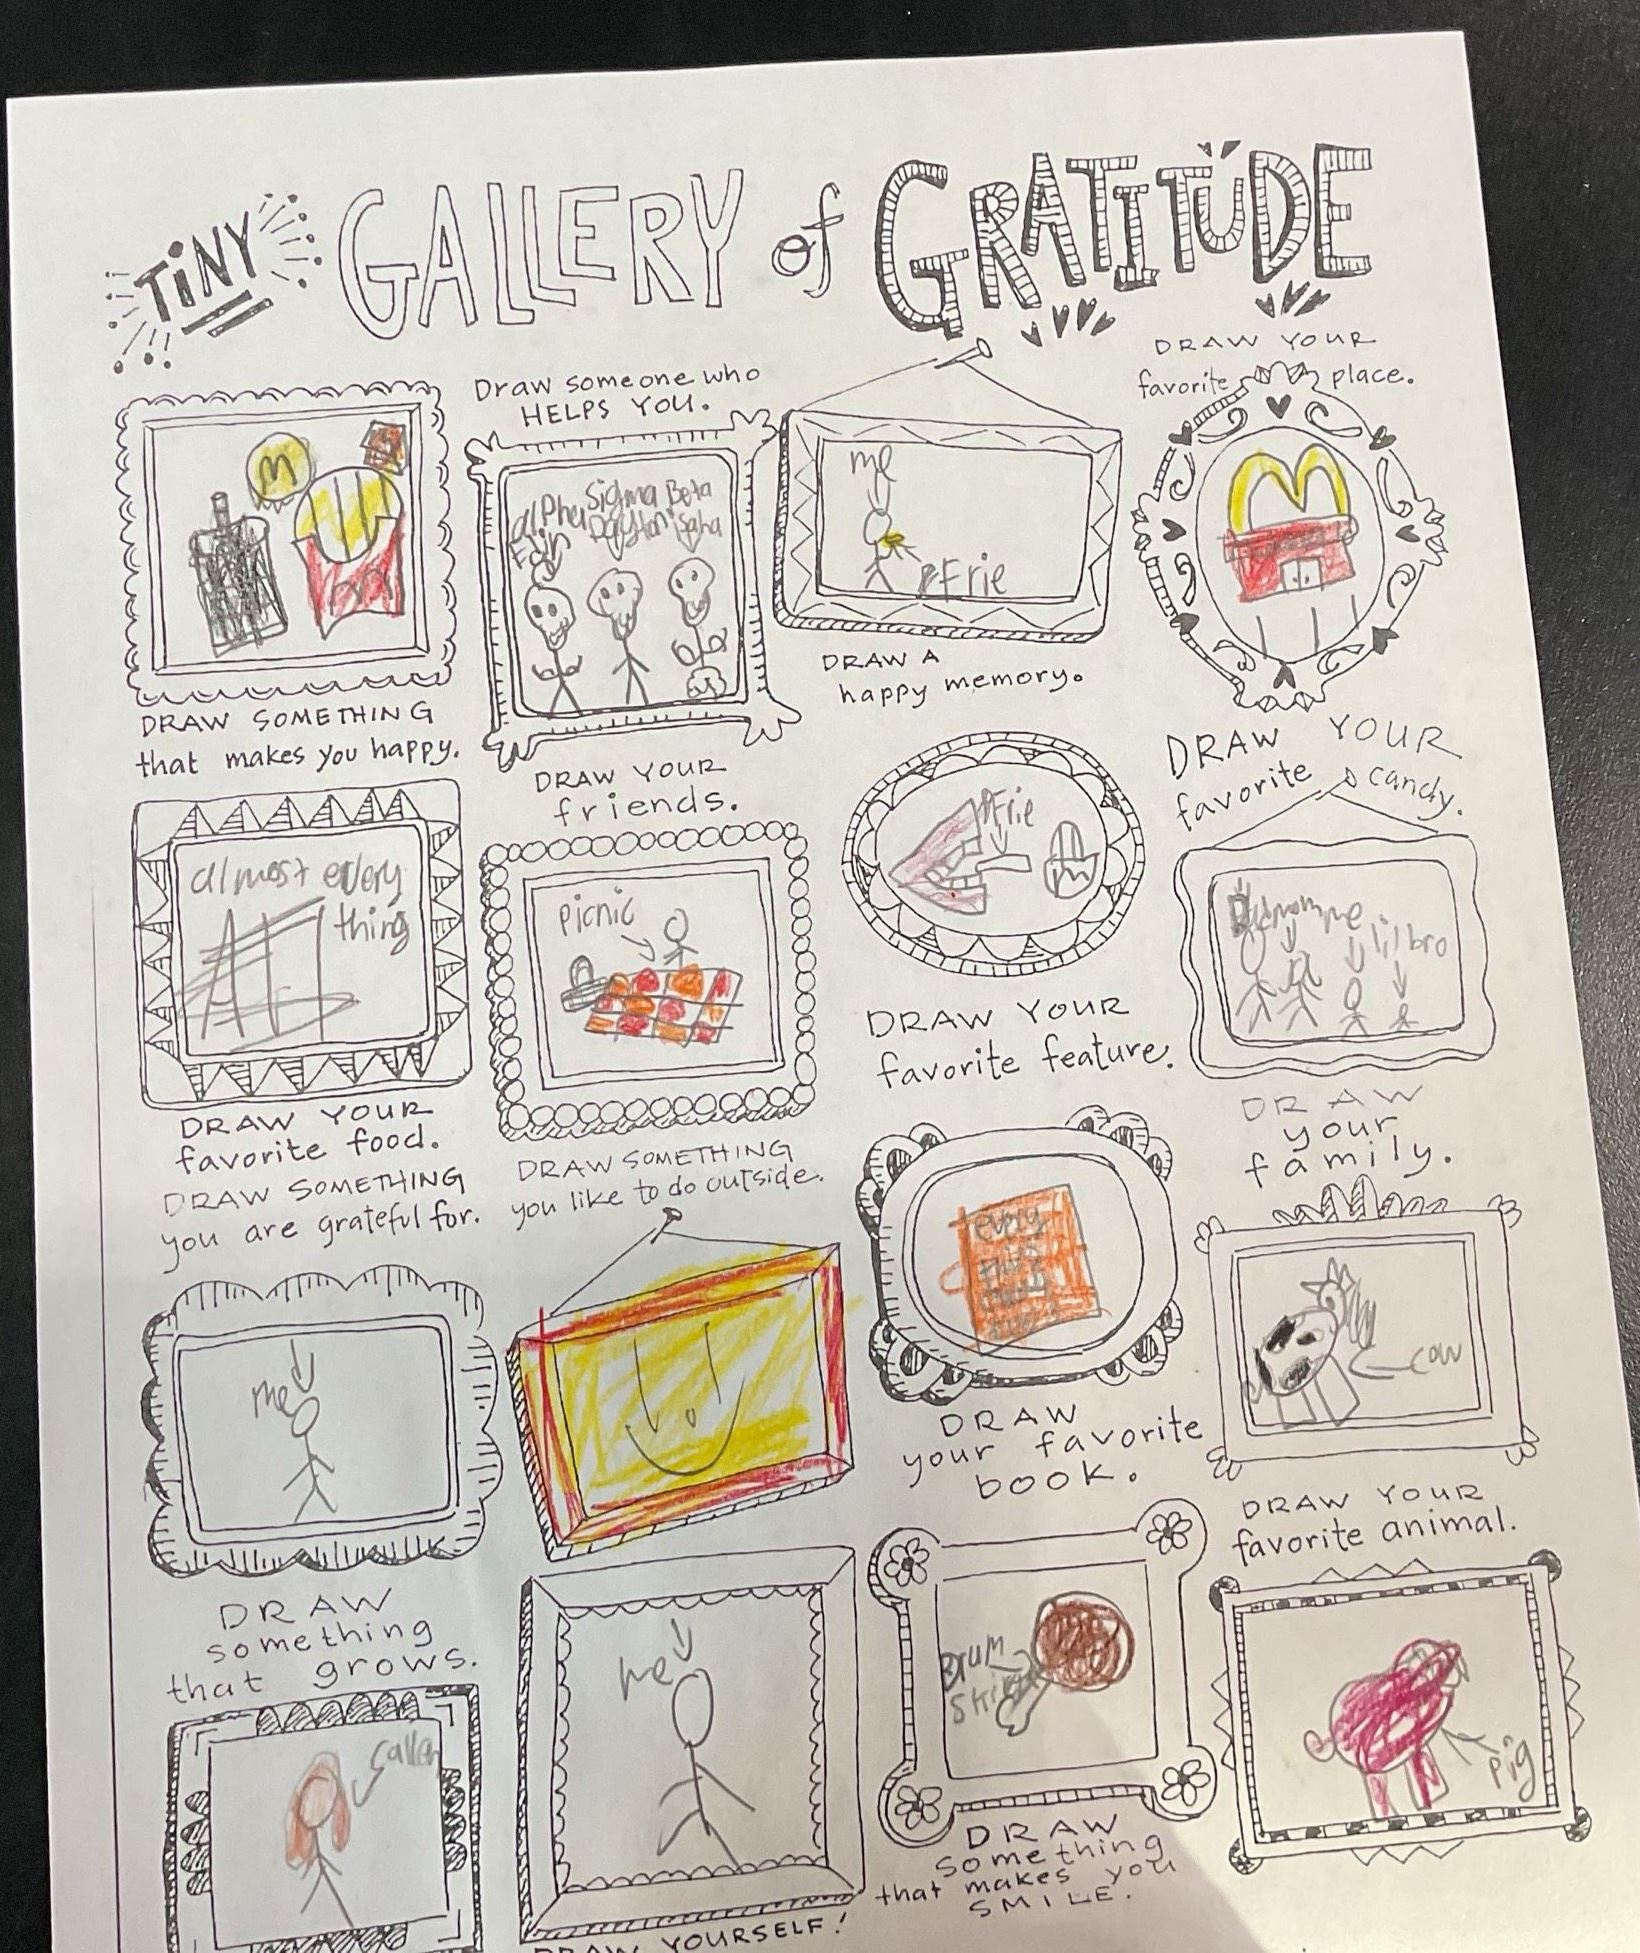 TiNY GALLERY of GRATITUDE
DRAW YOUR
favorite place.
Draw someone who
HELPS YOU.
M
alpha Sigma Beta
Dayton
me
Frie
M
DRAW SOMETHING
that makes you happy.
DRAW YOUR
friends.
DRAW A
happy memory.
DRAW YOUR
favorite candy.
almost every
thing
All
picnic
Frie
mom me
lil bro
DRAW YOUR
favorite food.
DRAW SOMETHING
you like to do outside.
DRAW YOUR
favorite feature.
DRAW
your
family.
DRAW SOMETHING
you are grateful for.
me
every
cow
DRAW
something
that grows.
DRAW
your favorite
book.
DRAW YOUR
favorite animal.
me
pig
DRAW YOURSELF!
DRAW
something
that makes you
SMILE.